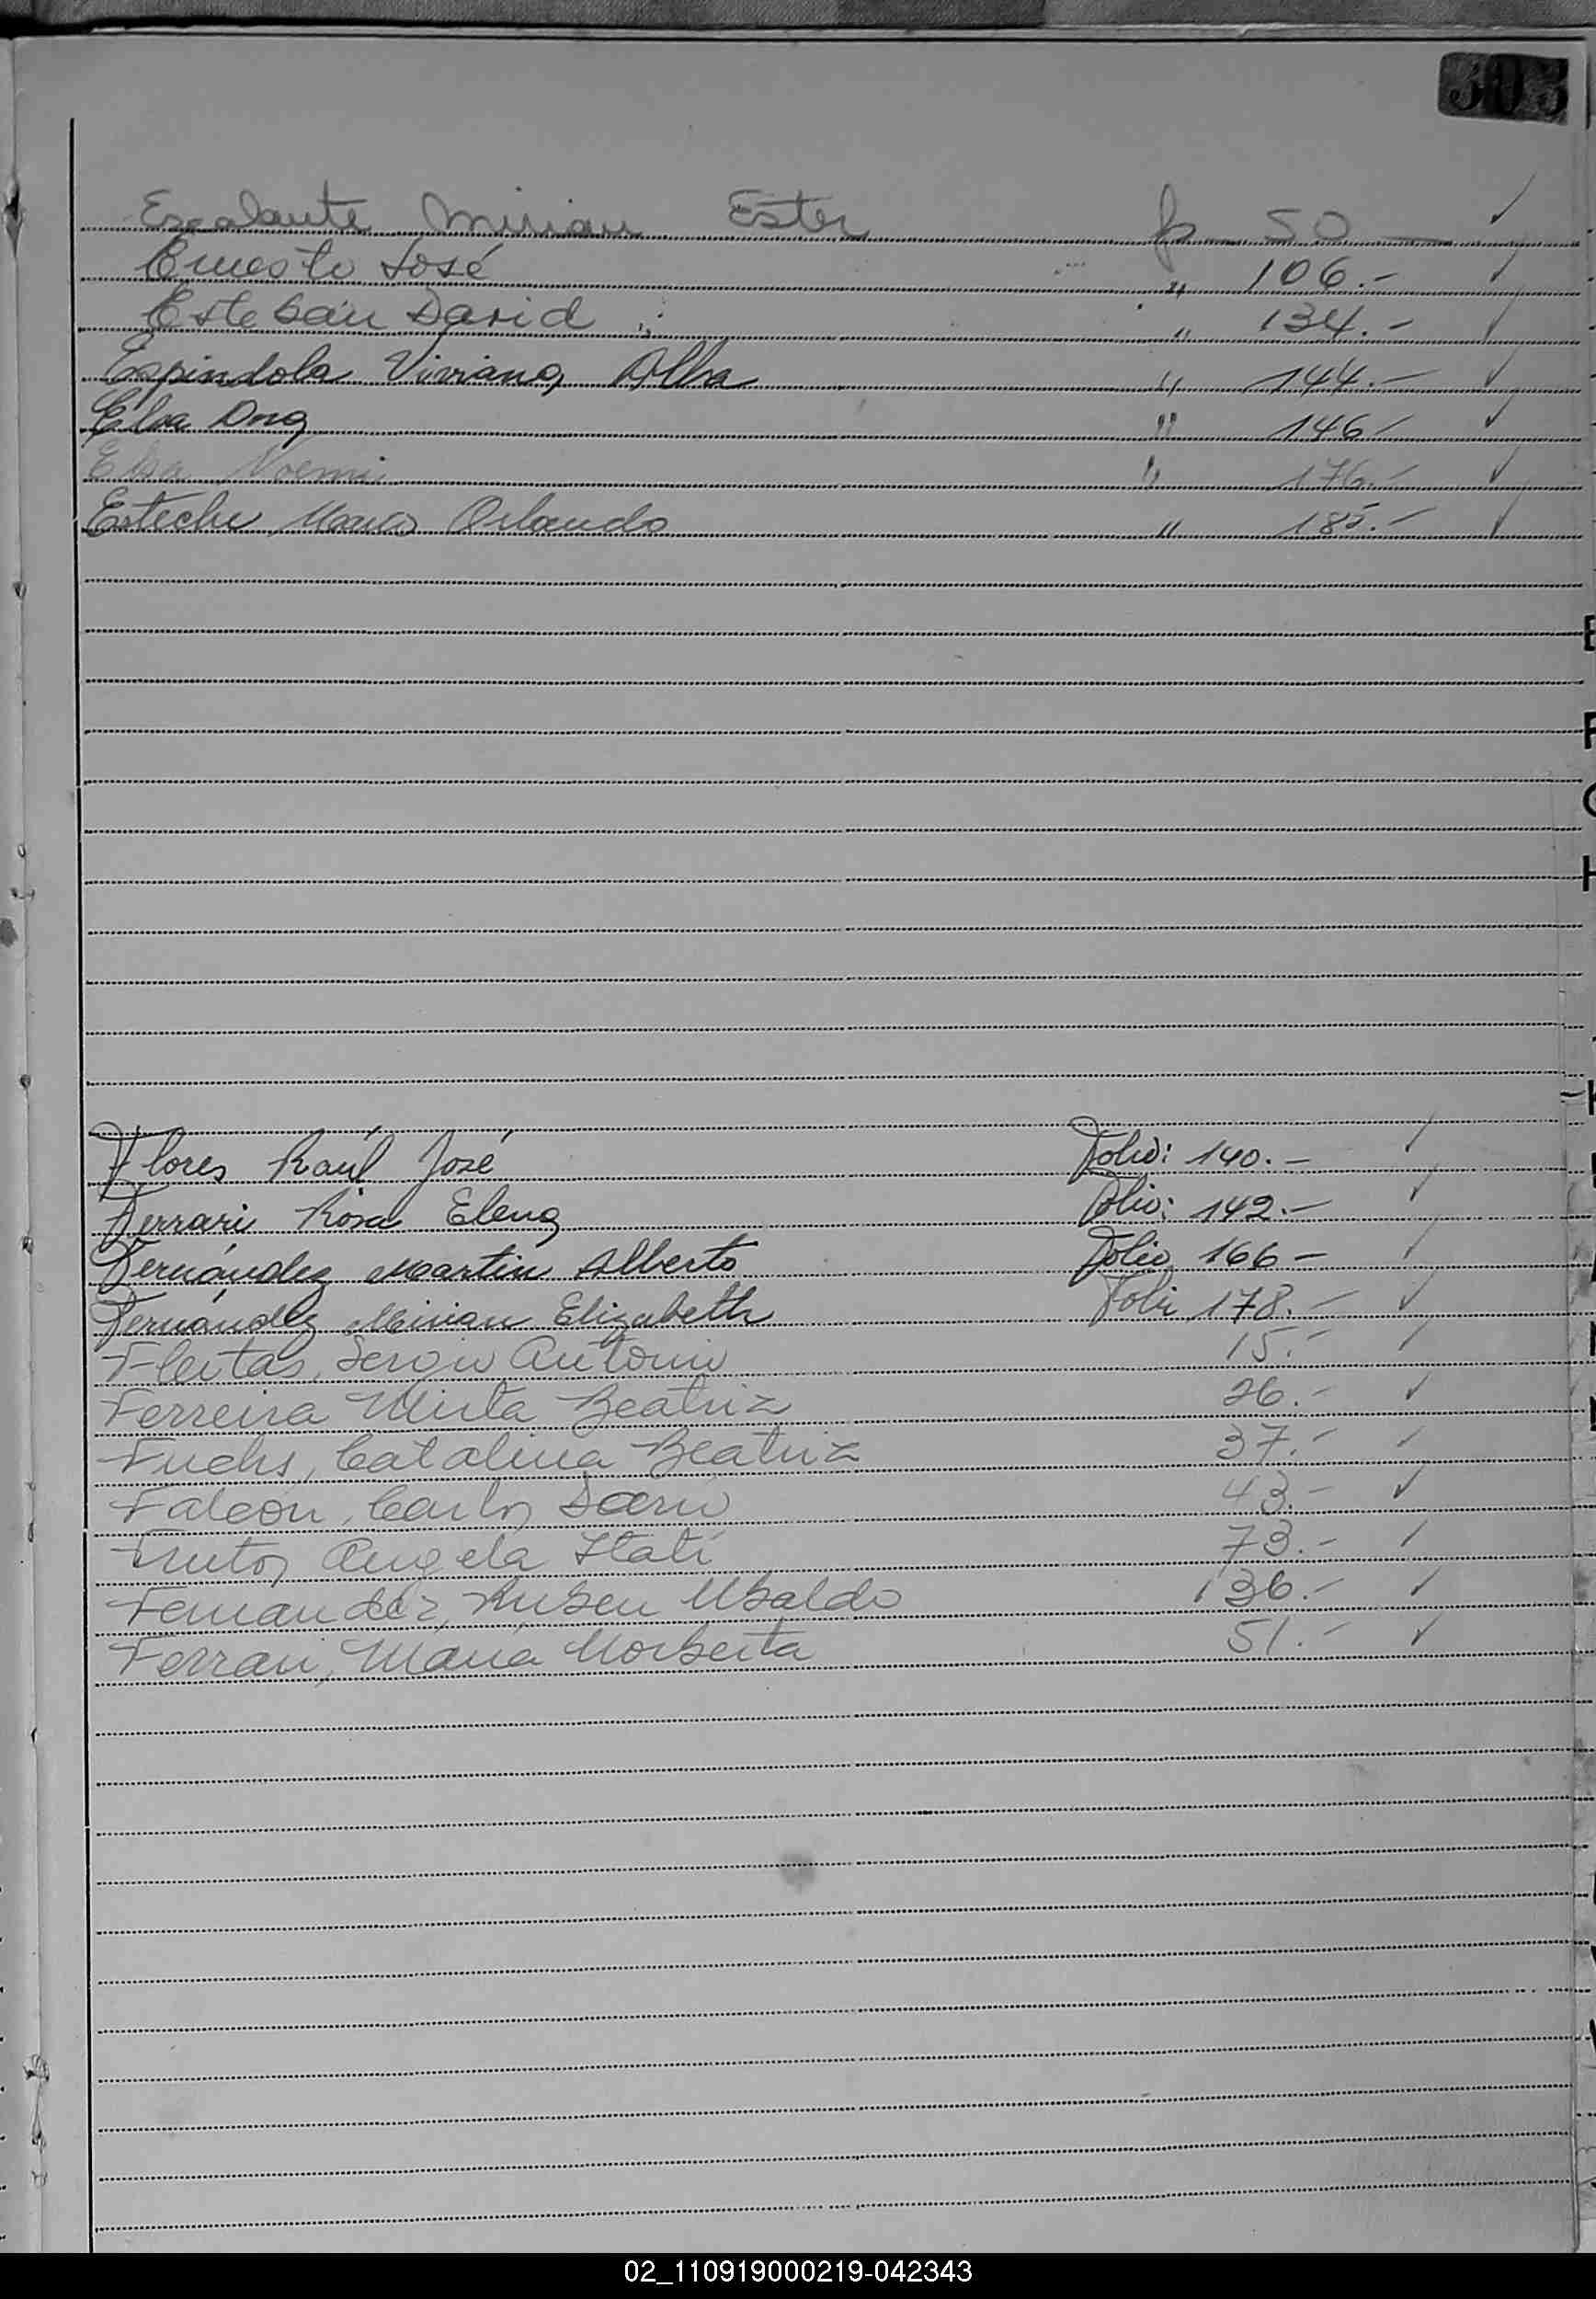 303
Escalante Mirian Ester fs 50 — ✓
Ernesto José " 106.- ✓
Esteban David " 134.- ✓
Espindola Viviana Alba " 144.- ✓
Elsa Dora " 146.- ✓
Elsa Noemi " 176.- ✓
Esteche Marcos Orlando " 185.- ✓
E
F
G
H
Flores Raúl José Folio: 140.- ✓
Ferrari Rosa Elena Folio: 142.- ✓
Fernández Martin Alberto Folio 166 - ✓
Fernández Mirian Elizabeth Folio 178.- ✓
Fleitas, Sergio Antonio 15.- ✓
Ferreira Mirta Beatriz 26.- ✓
Fuchs, Catalina Beatriz 37.- ✓
Falcón, Carlos Dario 43.- ✓
Frutos Angela Itatí 73.- ✓
Fernandez, Ruben Ubaldo 136.- ✓
Ferrari, María Norberta 51.- ✓
02_110919000219-042343